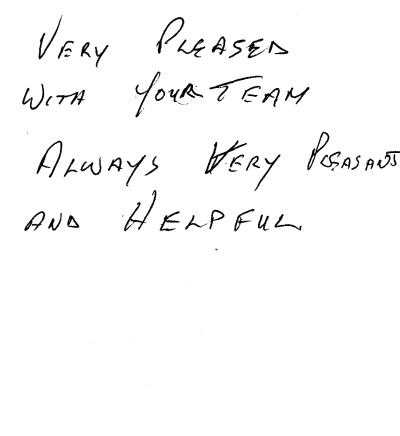 VERY PLEASED
WITH YOUR TEAM
ALWAYS VERY PLEASANT
AND HELPFUL